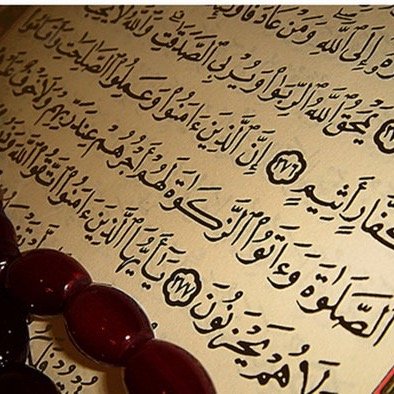 إِلَى ٱللَّهِ وَمَنْ عَادَ
يَمْحَقُ ٱللَّهُ ٱلرِّبَوٰا۟ وَيُرْبِى ٱلصَّدَقَـٰتِ وَٱللَّهُ لَا يُحِبُّ
كَفَّارٍ أَثِيمٍ ٢٧٦ إِنَّ ٱلَّذِينَ ءَامَنُوا۟ وَعَمِلُوا۟ ٱلصَّـٰلِحَـٰتِ وَأَقَامُوا۟
ٱلصَّلَوٰةَ وَءَاتَوُا۟ ٱلزَّكَوٰةَ لَهُمْ أَجْرُهُمْ عِندَ رَبِّهِمْ وَلَا خَوْفٌ
وَلَا هُمْ يَحْزَنُونَ ٢٧٧ يَـٰٓأَيُّهَا ٱلَّذِينَ ءَامَنُوا۟ ٱتَّقُوا۟ ٱللَّهَ